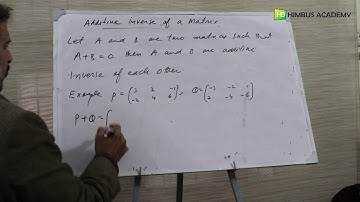 HIMBUS ACADEMY
Additive Inverse of a Matrix
Let A and B are two matrices such that
A+B=0 then A and B are additive
Inverse of each other.
Example P = (3 2 -1 / -2 4 6), Q = (-3 -2 1 / 2 -4 -6)
P+Q = (